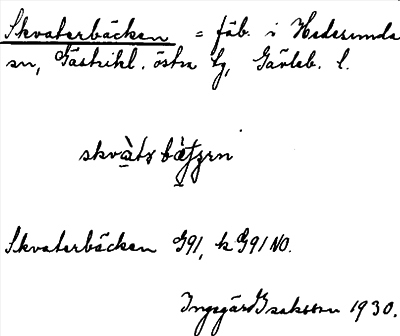 Skvaterbäcken = fäb. i Hedesunda
sn, Gästrikl. östra tg, Gävleb. l.
skvàtɐ bæ̀tʃen
Skvaterbäcken G91, k G91 NO.
Ingegärd Isaksson 1930.